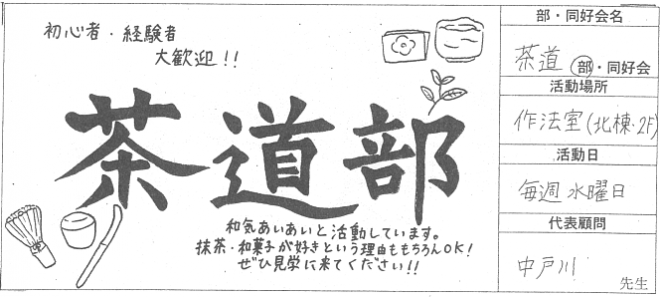 初心者・経験者
大歓迎!!
茶道部
和気あいあいと活動しています。
抹茶・和菓子が好きという理由ももちろんOK!
ぜひ見学に来てください!!
部・同好会名
茶道 部・同好会
活動場所
作法室(北棟・2F)
活動日
毎週 水曜日
代表顧問
中戸川 先生